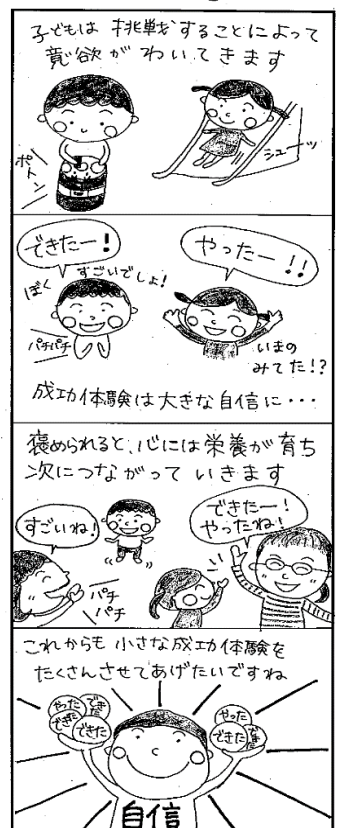 子どもは 挑戦することによって
意欲が わいてきます
ポトン
シューッ
できたー!
ぼく すごいでしょ!
パチパチ
やったー!!
いまの
みてた!?
成功体験は大きな自信に・・・
褒められると、心には栄養が育ち
次につながって いきます
すごいね!
できたー!
やったね!
パチ
パチ
これからも 小さな成功体験を
たくさんさせてあげたいですね
やった
できた
できた
できた
やった
できた
できた
自信